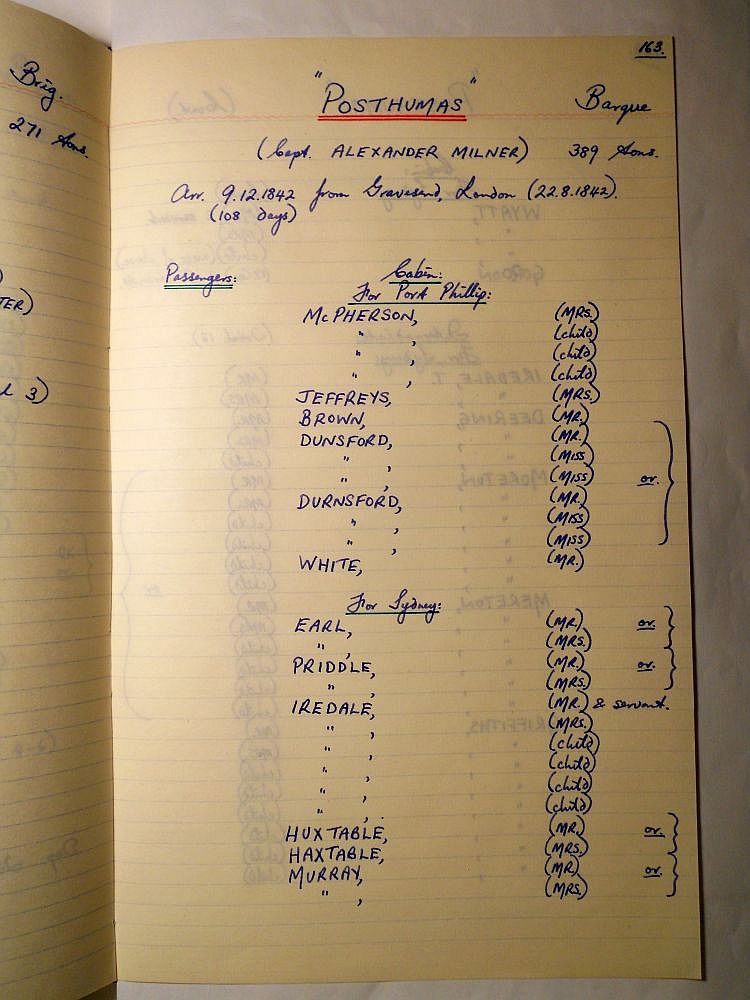 Brig.
271 tons.
TER)
3)
163.
"POSTHUMAS" Barque
(Capt. ALEXANDER MILNER) 389 tons.
Arr. 9.12.1842 from Gravesend, London (22.8.1842).
(108 days)
Passengers: Cabin:
For Port Phillip:
McPHERSON, (MRS.)
" , (child)
" , (child)
" , (child)
JEFFREYS, (MRS.)
BROWN, (MR.)
DUNSFORD, (MR.)
" , (MISS)
" , (MISS) or.
DURNSFORD, (MR.)
" , (MISS)
" , (MISS)
WHITE, (MR.)
For Sydney:
EARL, (MR.) or.
" , (MRS.)
PRIDDLE, (MR.) or.
" , (MRS.)
IREDALE, (MR.) & servant.
" , (MRS.)
" , (child)
" , (child)
" , (child)
" , (child)
HUXTABLE, (MR.) or.
HAXTABLE, (MRS.)
MURRAY, (MR.) or.
" , (MRS.)